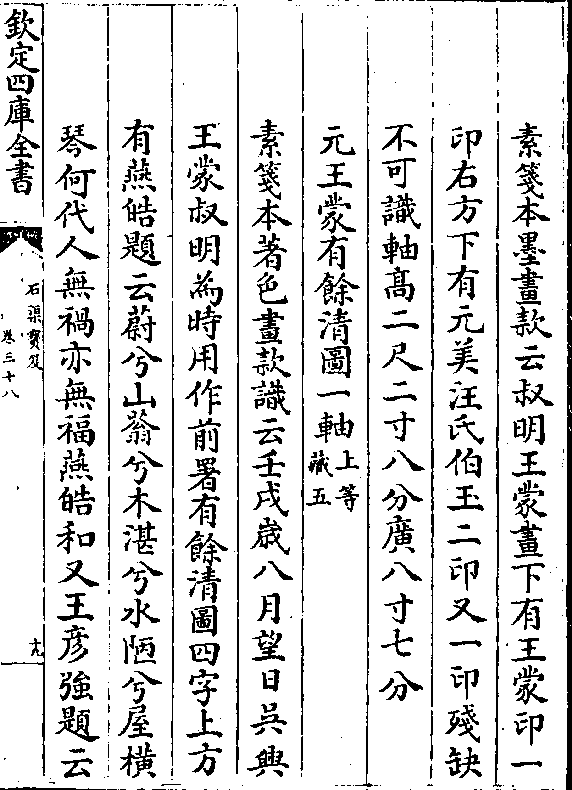 素箋本墨畫款云叔明王蒙畫下有王蒙印一
印右方下有元美汪氏伯玉二印又一印殘缺
不可識軸髙二尺二寸八分廣八寸七分
元王蒙有餘清圖一軸上等藏五
素箋本著色畫款識云壬戌歳八月望日吳興
王蒙叔明為時用作前署有餘清圖四字上方
有燕皓題云蔚兮山蓊兮木湛兮水陋兮屋横
琴何代人無禍亦無福燕皓和又王彦強題云
欽定四庫全書
石渠寳笈
卷三十八